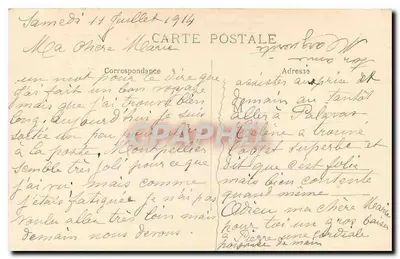 Samedi 11 Juillet 1914
Ma chère Marie
CARTE POSTALE
Correspondance
un mot pour te dire que
j'ai fait un bon voyage
mais que j'ai trouvé bien
long. aujourd'hui je suis
sortie un peu
à la poste. Montpellier
semble très joli pour ce que
j'ai vu, mais comme
j'étais fatiguée je n'ai pas
voulu aller très loin mais
demain nous devons
Adresse
assister au prix et
demain au tantôt
aller à Palavas
a trouvé
superbe et
dit que c'est joli
mais bien contente
quand même
Adieu ma chère Marie
pour toi un gros baiser
Pierre une cordiale
poignée de main
CPARAMA